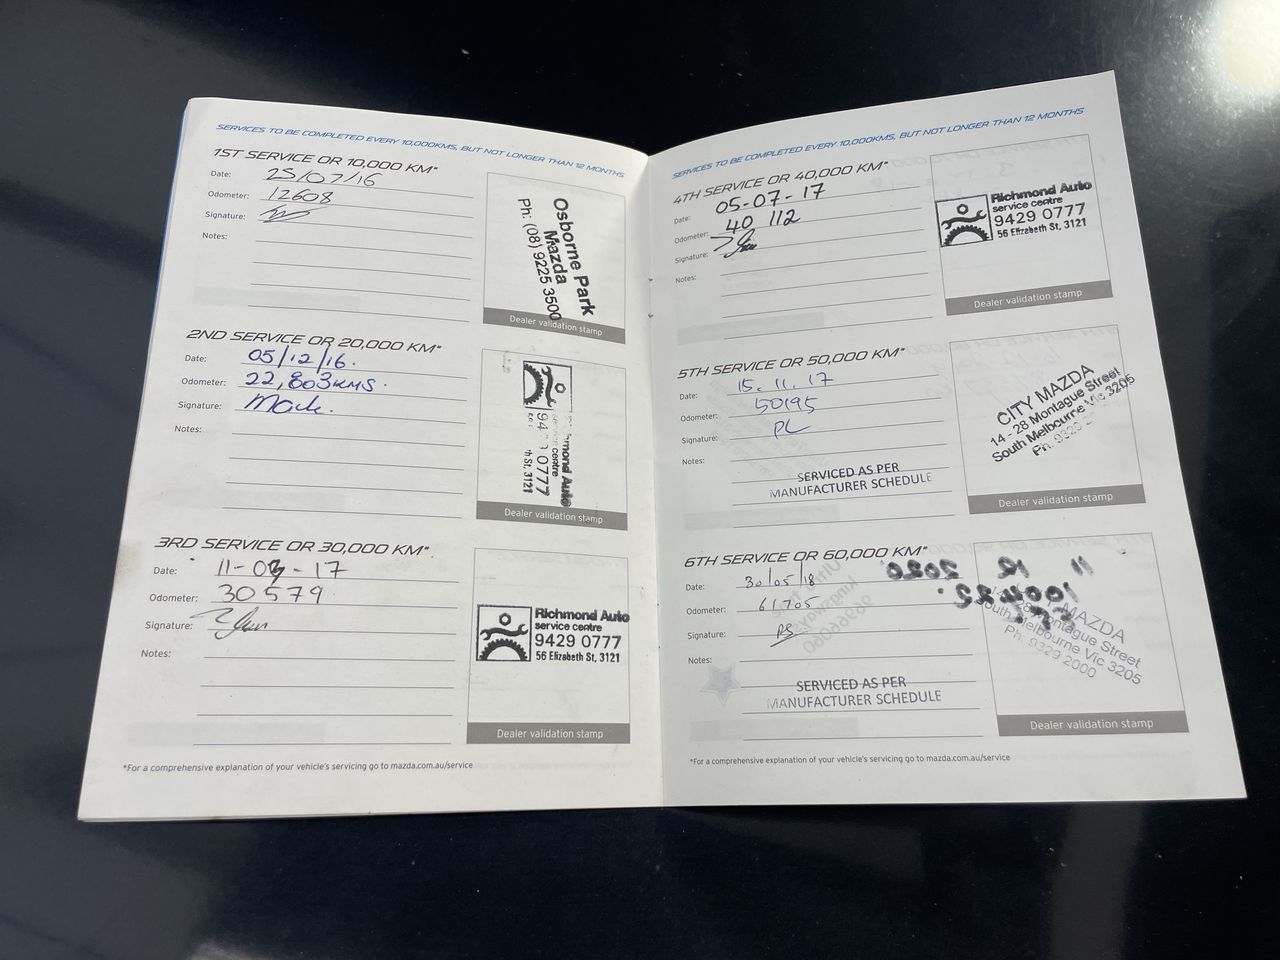 SERVICES TO BE COMPLETED EVERY 10,000KMS, BUT NOT LONGER THAN 12 MONTHS
1ST SERVICE OR 10,000 KM*
Date: 25/07/16
Odometer: 12608
Signature:
Notes:
Osborne Park
Mazda
Ph: (08) 9225 3500
Dealer validation stamp
2ND SERVICE OR 20,000 KM*
Date: 05/12/16.
Odometer: 22,803KMS.
Signature: Mark.
Notes:
Auto
service centre
0777
St, 3121
Dealer validation stamp
3RD SERVICE OR 30,000 KM*
Date: 11-03-17
Odometer: 30579
Signature:
Notes:
Richmond Auto
service centre
9429 0777
56 Elizabeth St, 3121
Dealer validation stamp
*For a comprehensive explanation of your vehicle's servicing go to mazda.com.au/service
SERVICES TO BE COMPLETED EVERY 10,000KMS, BUT NOT LONGER THAN 12 MONTHS
4TH SERVICE OR 40,000 KM*
Date: 05-07-17
Odometer: 40 112
Signature:
Notes:
Richmond Auto
service centre
9429 0777
56 Elizabeth St, 3121
Dealer validation stamp
5TH SERVICE OR 50,000 KM*
Date: 15.11.17
Odometer: 50195
Signature: PL
Notes:
SERVICED AS PER
MANUFACTURER SCHEDULE
CITY MAZDA
14 - 28 Montague Street
South Melbourne Vic 3205
Ph: 9329
Dealer validation stamp
6TH SERVICE OR 60,000 KM*
Date: 30/05/18
Odometer: 61705
Signature:
Notes:
SERVICED AS PER
MANUFACTURER SCHEDULE
MAZDA
Montague Street
South Melbourne Vic 3205
Ph: 9329 2000
Dealer validation stamp
*For a comprehensive explanation of your vehicle's servicing go to mazda.com.au/service